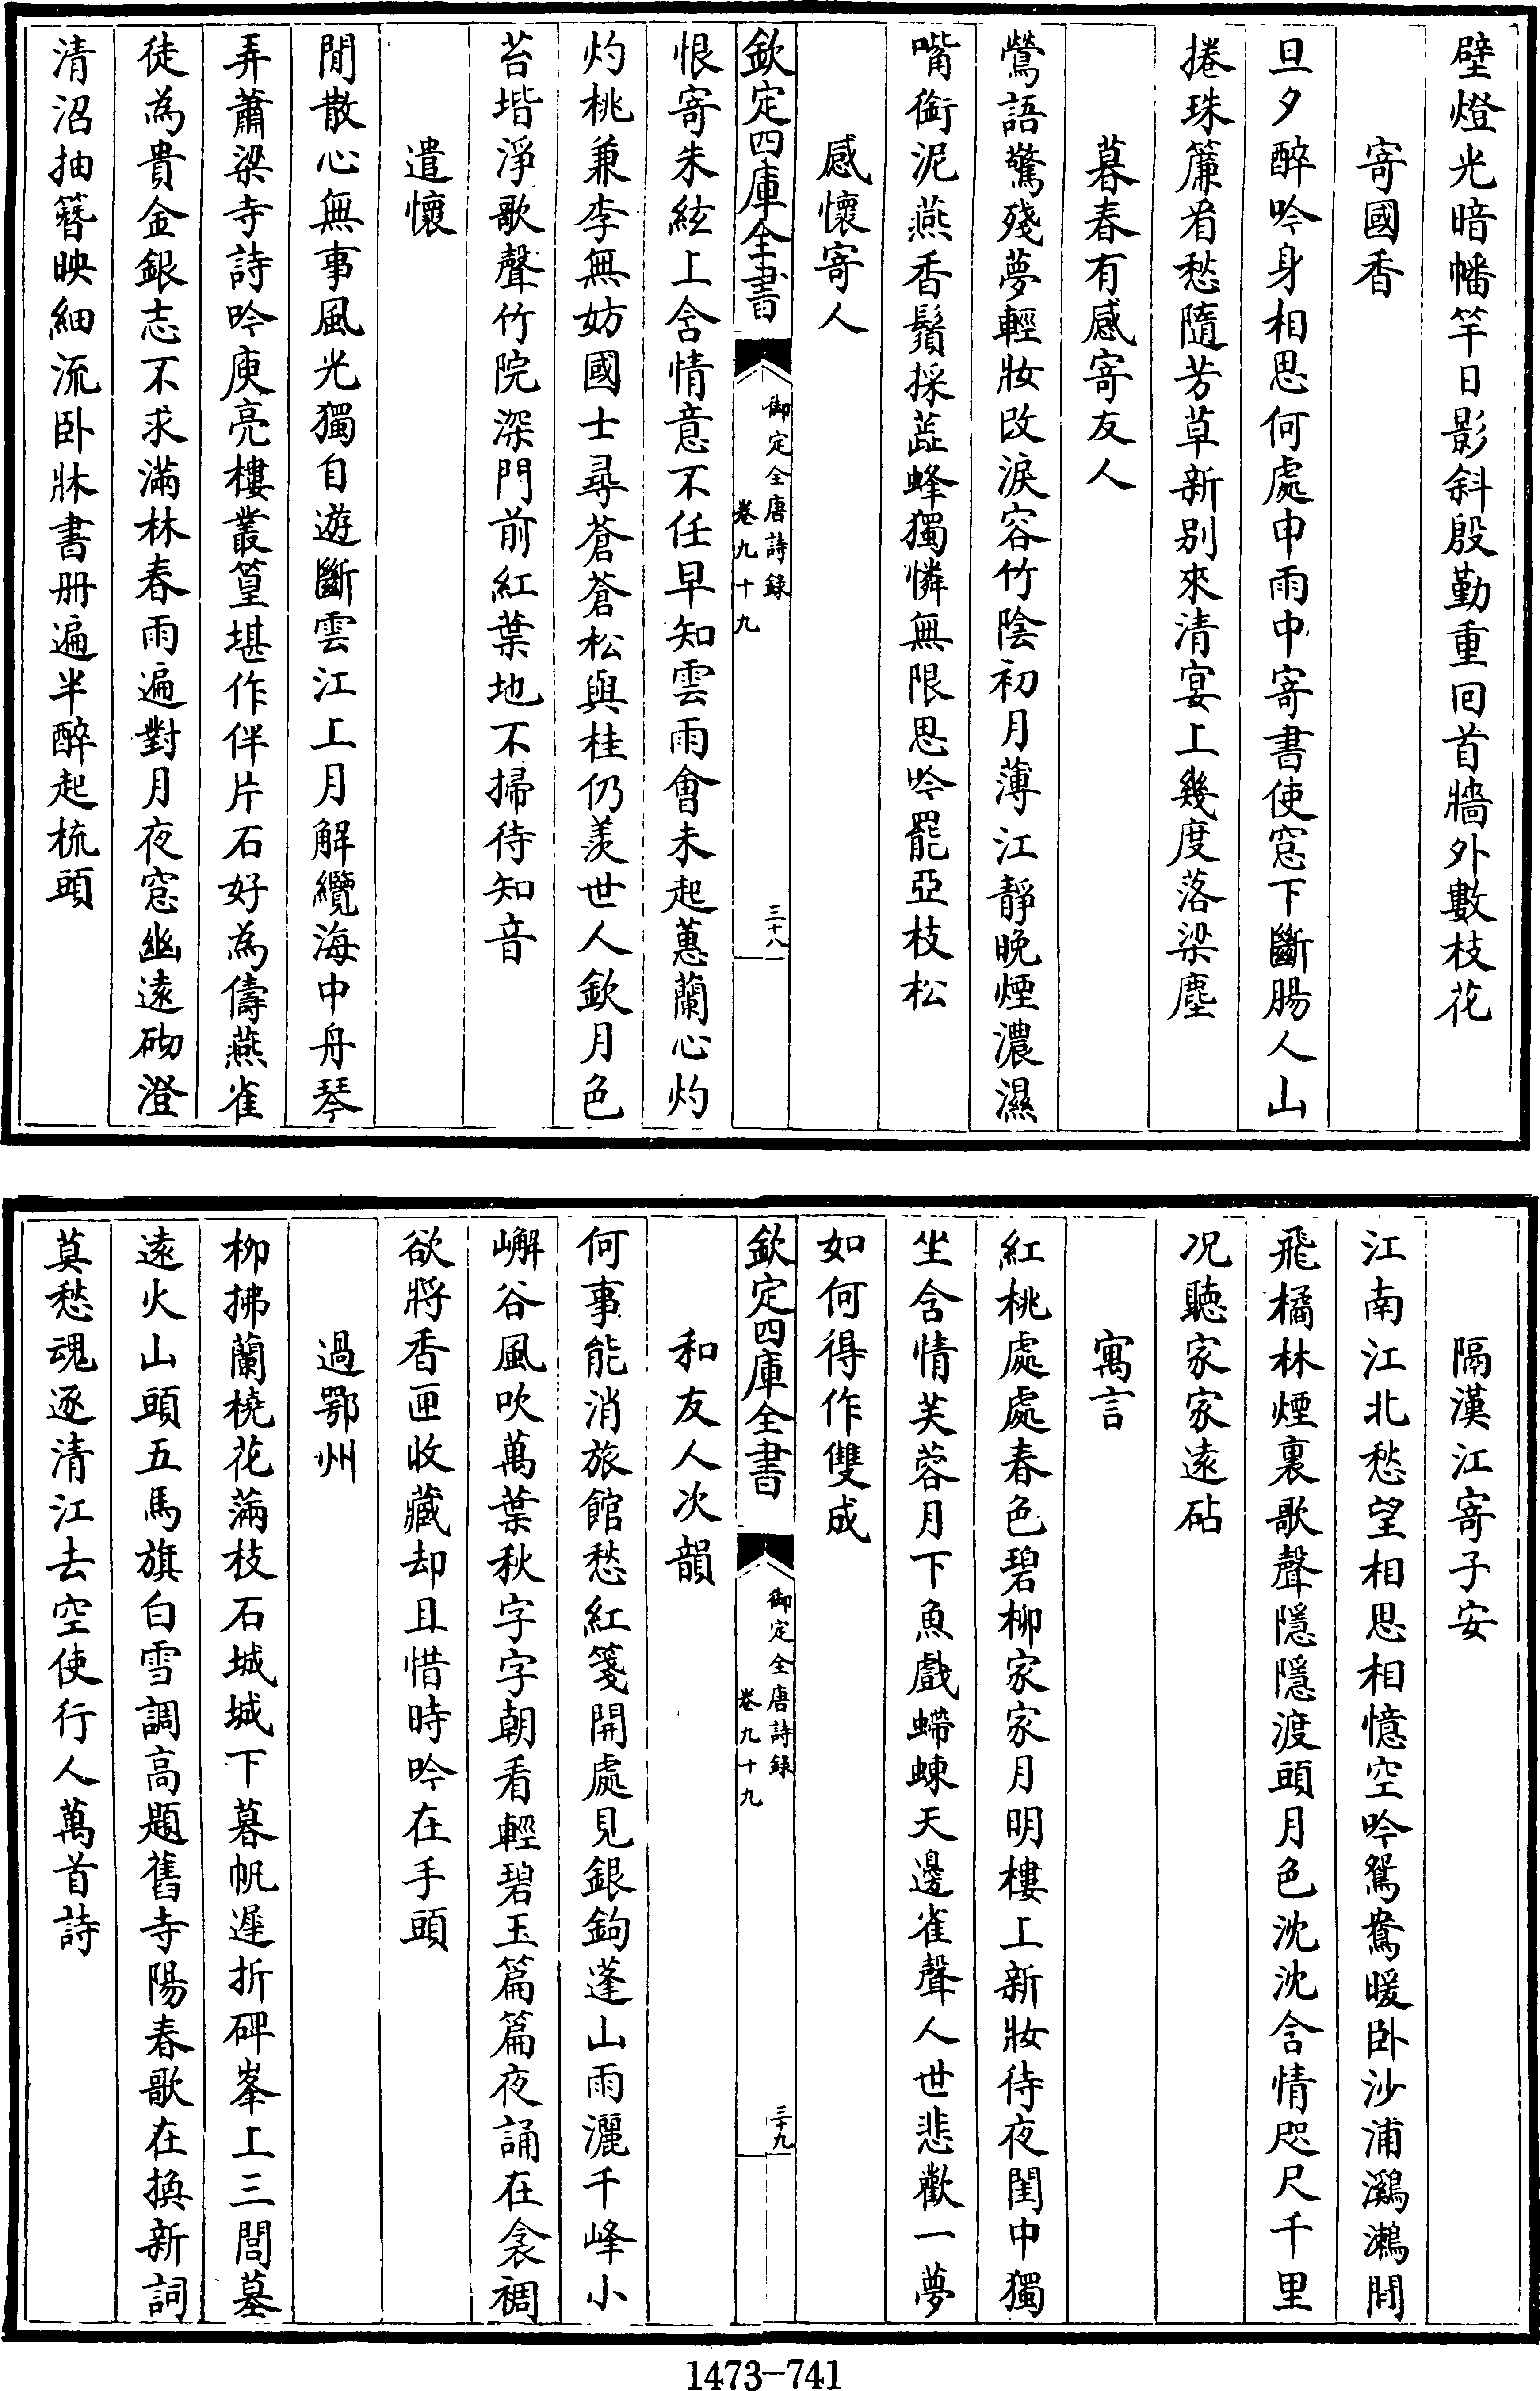 壁燈光暗幡竿日影斜殷勤重回首牆外數枝花
寄國香
旦夕醉吟身相思何處申雨中寄書使窓下斷腸人山
捲珠簾看愁隨芳草新别來清宴上幾度落梁塵
暮春有感寄友人
鶯語驚殘夢輕妝改淚容竹陰初月薄江靜晚煙濃濕
嘴銜泥燕香鬚採蕋蜂獨憐無限思吟罷亞枝松
感懷寄人
欽定四庫全書
御定全唐詩録
卷九十九
三十八
恨寄朱絃上含情意不任早知雲雨會未起蕙蘭心灼
灼桃兼李無妨國士尋蒼蒼松與桂仍羨世人欽月色
苔堦淨歌聲竹院深門前紅葉地不掃待知音
遣懷
閒散心無事風光獨自遊斷雲江上月解纜海中舟琴
弄蕭梁寺詩吟庾亮樓叢篁堪作伴片石好為儔燕雀
徒為貴金銀志不求滿林春雨遍對月夜窓幽遠砌澄
清沼抽簪映細流卧牀書册遍半醉起梳頭
隔漢江寄子安
江南江北愁望相思相憶空吟鴛鴦暖卧沙浦鸂鷘閒
飛橘林煙裏歌聲隱隱渡頭月色沈沈含情咫尺千里
况聽家家遠砧
寓言
紅桃處處春色碧栁家家月明樓上新妝待夜閨中獨
坐含情芙蓉月下魚戲螮蝀天邊雀聲人世悲歡一夢
如何得作雙成
欽定四庫全書
御定全唐詩録
卷九十九
三十九
和友人次韻
何事能消旅館愁紅箋開處見銀鉤蓬山雨灑千峰小
嶰谷風吹萬葉秋字字朝看輕碧玉篇篇夜誦在衾裯
欲將香匣收藏却且惜時吟在手頭
過鄂州
栁拂蘭橈花滿枝石城城下暮帆遲折碑峯上三閭墓
遠火山頭五馬旗白雪調高題舊寺陽春歌在換新詞
莫愁魂逐清江去空使行人萬首詩
1473-741